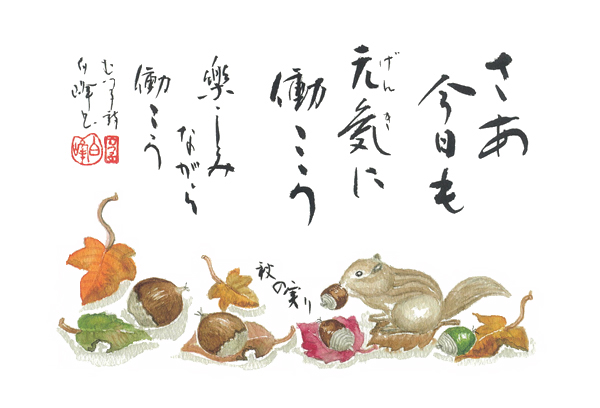 さあ
今日も
元気に
げんき
働こう
楽しみ
ながら
働こう
秋の実り